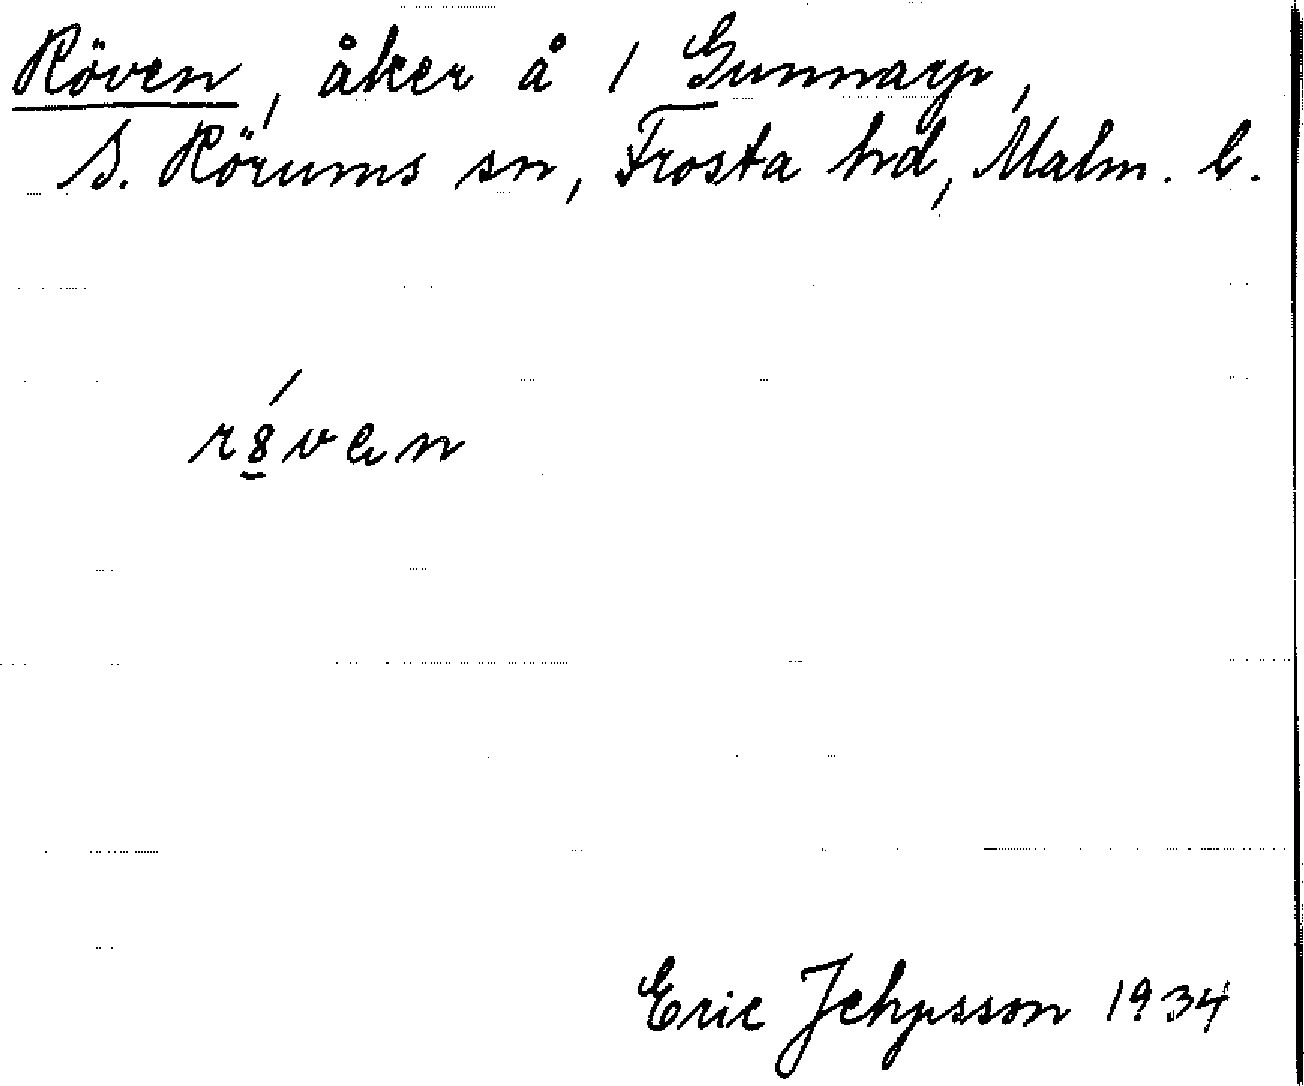 Röven, åker å 1 Gunnarp,
S. Rörums sn, Frosta hrd, Malm. l.
Eric Jehpsson 1934